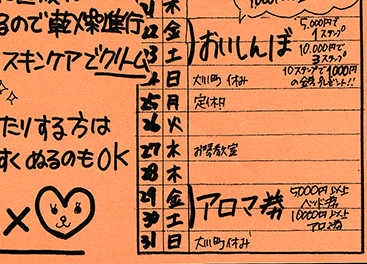 るので乾燥進行
スキンケアでクリーム
たりする方は
すくぬるのもOK
×
21 木
22 金
23 土
おいしんぼ
5,000円で
1スタンプ
10,000円で
3スタンプ
日 大川町 休み
10スタンプで1000円
の金券プレゼント!!
25 月 定休日
26 火
27 木 お琴教室
28 木
29 金
30 土
アロマ券
5,000円以上
ヘッド券
10000円以上
アロマ券
31 日 大川町休み